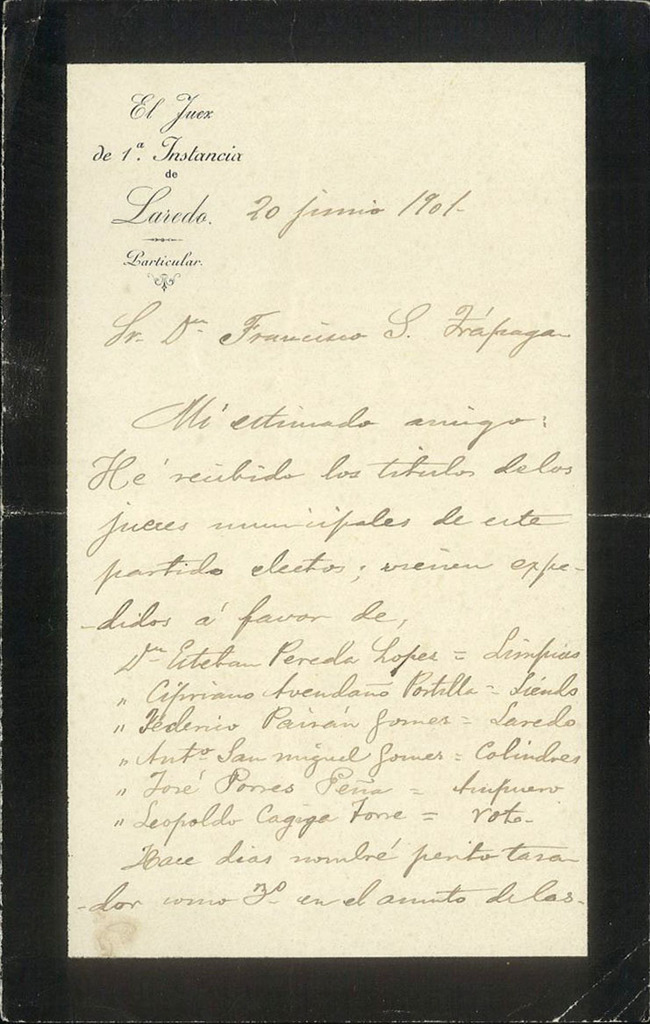 El Juez
de 1ª. Instancia
de
Laredo.
Particular.
20 junio 1901.
Sr. Dn. Francisco S. Trápaga
Mi estimado amigo:
Hé recibido los titulos de los
jueces municipales de este
partido electos; vienen expe-
-didos á favor de,
Dn Esteban Pereda Lopez = Limpias
" Cipriano Avendaño Portilla = Liendo
" Federico Pairán Gomez = Laredo
" Antº San miguel Gomez = Colindres
" José Porres Peña = Ampuero
" Leopoldo Cagiga Torre = Voto.
Hace dias nombré perito tasa-
-dor como 3º en el asunto de las-